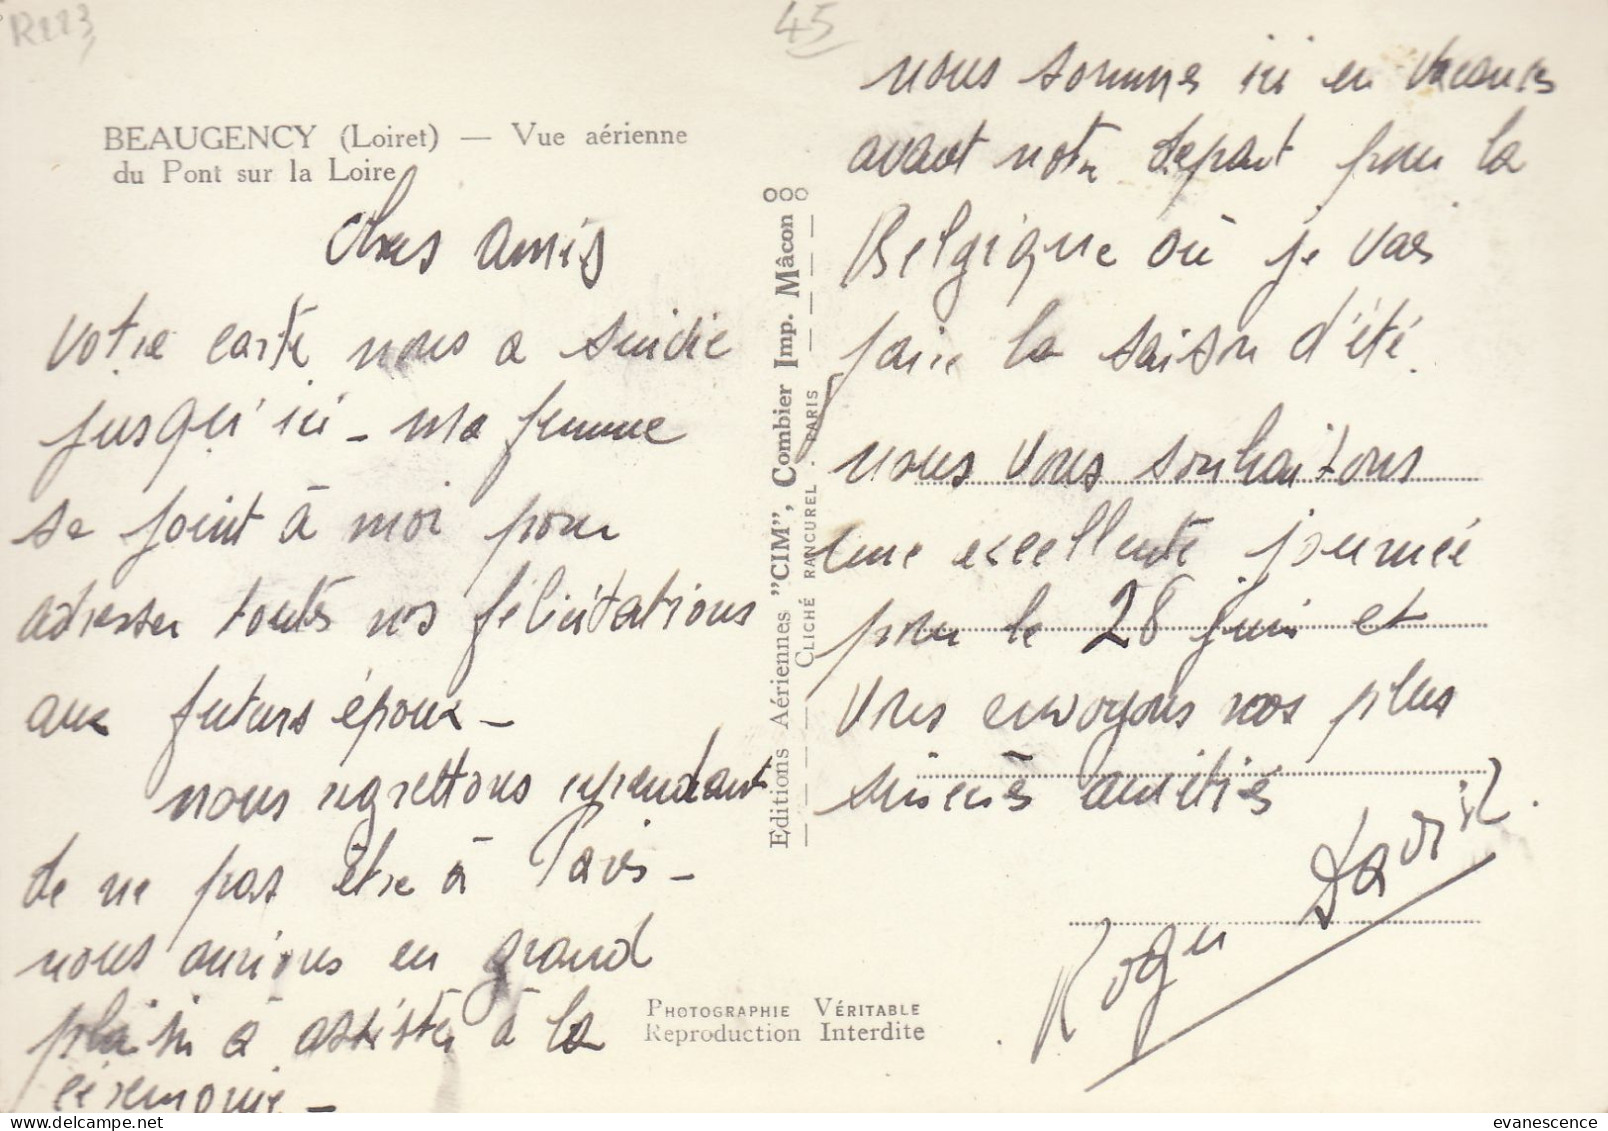 R113
45
BEAUGENCY (Loiret) — Vue aérienne
du Pont sur la Loire
Chers amis
votre carte nous a suivie
jusqu'ici - ma femme
se joint à moi pour
adresser toutes nos félicitations
aux futurs époux -
nous regrettons cependant
de ne pas être à Paris -
nous aurions en grand
plaisir à assister à la
cérémonie -
Editions Aériennes "CIM", Combier Imp. Mâcon
CLICHÉ RANCUREL . PARIS
nous sommes ici en vacances
avant notre départ pour la
Belgique où je vais
faire la saison d'été.
nous vous souhaitons
une excellente journée
pour le 28 juin et
vous envoyons nos plus
sincères amitiés
Roger
PHOTOGRAPHIE VÉRITABLE
Reproduction Interdite
evanescence